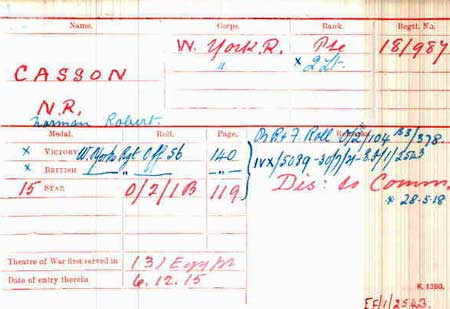 Name. Corps. Rank. Regtl. No.
CASSON W. York. R. Pte 18/987
" × 2/Lt.
N.R.
Norman Robert.
Medal. Roll. Page. Remarks.
× VICTORY W. York Rgt Off 56 140
× BRITISH " "
15 STAR 0/2/1B 119
IVX/5089 - 30/7/21 - E.F/1/2543
Dis: to Comm.
× 28·5·18
Theatre of War first served in (3) Egypt
Date of entry therein 6.12.15
K. 1380.
EF/1/2543.